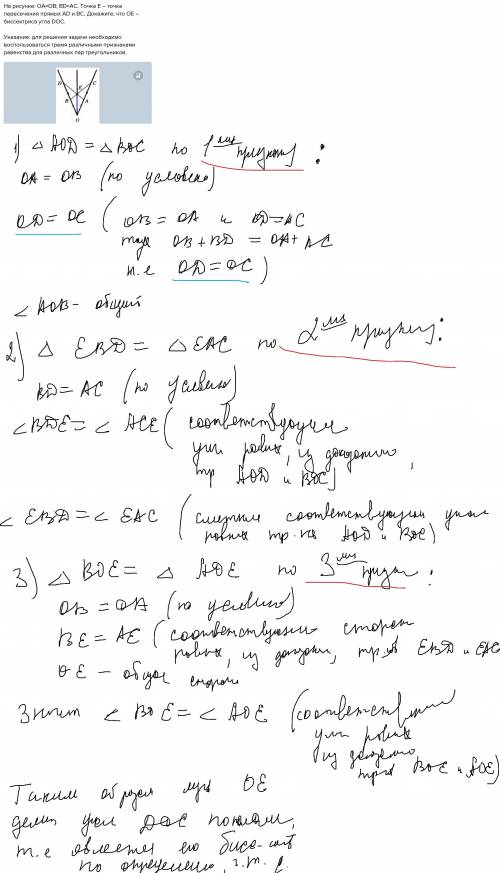 На рисунке: OA=OB; BD=AC. Точка E – точка
пересечения прямых AD и BC. Докажите, что OE –
биссектриса угла DOC.
Указание: для решения задачи необходимо
воспользоваться тремя различными признаками
равенства для различных пар треугольников.
D C
E
B A
O
1) △ AOD = △ BOC по 1ому признаку:
OA = OB (по условию)
OD = OC ( OB = OA и BD = AC
тогда OB + BD = OA + AC
т.е OD = OC )
∠ AOB - общий
2) △ EBD = △ EAC по 2ому признаку:
BD = AC (по условию)
∠BDE = ∠ ACE ( соответствующие
углы равных, из доказанного,
тр AOD и BOC)
∠ EBD = ∠ EAC (смежные соответствующим углам
равных тр-ков AOD и BOC)
3) △ BOE = △ AOE по 3ому признаку:
OB = OA (по условию)
BE = AE (соответствующие стороны
равных, из доказанного, тр-ков EBD и EAC
OE - общая сторона
Значит ∠ BOE = ∠ AOE (соответствующие
углы равных
из доказанного
тр-ков BOE и AOE)
Таким образом луч OE
делит угол DOC пополам,
т.е является его биссектрисой
по определению, ч.т.д.